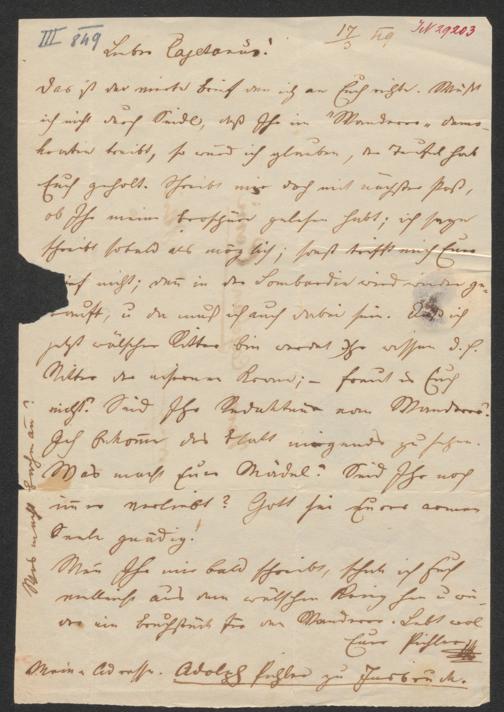 III 849
17/3 49
IN 29203
Lieber Cajetanus!
Das ist der vierte Brief den ich an Euch richte. Wüßt
ich nicht durch Seidl, daß Ihr im "Wanderer" demo-
kratie treibt, so würd ich glauben, der Teufel hab
Euch geholt. Schreibt mir doch mit nächster Post,
ob Ihr meine Broschüre gelesen habt; ich sage
schreibt sobald als möglich; sonst trifft mich Euer
ief nicht; denn in der Lombardie wird wieder ge-
rauft, u da muß ich auch dabei sein. Daß ich
jetzt wälscher Ritter bin werdet Ihr wissen d.h.
Ritter der eisernen Krone; – freut es Euch
nicht? Seid Ihr Redakteur vom Wanderer?
Ich bekomme das Blatt nirgends zu sehen.
Was macht Euer Mädel? Seid Ihr noch
immer verliebt? Gott sei Eurer armen
Seele gnädig.
Wenn Ihr mir bald schreibt, schick ich Euch
vielleicht aus dem wälschen Krieg hin u wie-
der ein Bruchstück für den Wanderer. Lebt wol
Euer Pichler
Meine Adresse. Adolph Pichler zu Innsbruck.
Was macht